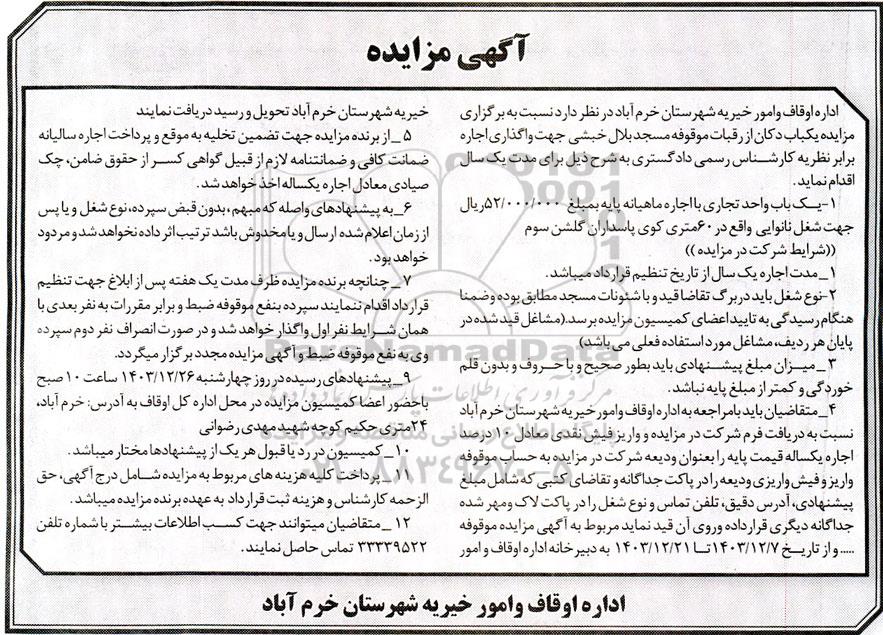 آگهی مزایده
اداره اوقاف وامور خیریه شهرستان خرم آباد در نظر دارد نسبت به برگزاری
مزایده یکباب دکان از رقبات موقوفه مسجد بلال خبشی جهت واگذاری اجاره
برابر نظریه کارشناس رسمی دادگستری به شرح ذیل برای مدت یک سال
اقدام نماید.
۱-یک باب واحد تجاری با اجاره ماهیانه پایه بمبلغ ۵۲/۰۰۰/۰۰۰ریال
جهت شغل نانوایی واقع در ۶۰متری کوی پاسداران گلشن سوم
((شرایط شرکت در مزایده))
۱_مدت اجاره یک سال از تاریخ تنظیم قرارداد میباشد.
۲-نوع شغل باید در برگ تقاضا قید و با شئونات مسجد مطابق بوده وضمنا
هنگام رسیدگی به تایید اعضای کمیسیون مزایده برسد.(مشاغل قید شده در
پایان هر ردیف، مشاغل مورد استفاده فعلی می باشد)
۳_میزان مبلغ پیشنهادی باید بطور صحیح و با حروف و بدون قلم
خوردگی و کمتر از مبلغ پایه نباشد.
۴_متقاضیان باید بامراجعه به اداره اوقاف وامور خیریه شهرستان خرم آباد
نسبت به دریافت فرم شرکت در مزایده و واریز فیش نقدی معادل ۱۰ درصد
اجاره یکساله قیمت پایه را بعنوان ودیعه شرکت در مزایده به حساب موقوفه
واریز و فیش واریزی ودیعه را در پاکت جداگانه و تقاضای کتبی که شامل مبلغ
پیشنهادی، آدرس دقیق، تلفن تماس و نوع شغل را در پاکت لاک ومهر شده
جداگانه دیگری قرارداده وروی آن قید نماید مربوط به آگهی مزایده موقوفه
..... و از تاریخ ۱۴۰۳/۱۲/۷تا ۱۴۰۳/۱۲/۲۱ به دبیرخانه اداره اوقاف و امور
خیریه شهرستان خرم آباد تحویل و رسید دریافت نمایند
۵_از برنده مزایده جهت تضمین تخلیه به موقع و پرداخت اجاره سالیانه
ضمانت کافی و ضمانتنامه لازم از قبیل گواهی کسر از حقوق ضامن، چک
صیادی معادل اجاره یکساله اخذ خواهد شد.
۶_به پیشنهادهای واصله که مبهم، بدون قبض سپرده، نوع شغل و یا پس
از زمان اعلام شده ارسال و یا مخدوش باشد ترتیب اثر داده نخواهد شد و مردود
خواهد بود.
۷_چنانچه برنده مزایده ظرف مدت یک هفته پس از ابلاغ جهت تنظیم
قرارداد اقدام ننمایند سپرده بنفع موقوفه ضبط و برابر مقررات به نفر بعدی با
همان شرایط نفر اول واگذار خواهد شد و در صورت انصراف نفر دوم سپرده
وی به نفع موقوفه ضبط و آگهی مزایده مجدد برگزار میگردد.
۹_پیشنهادهای رسیده در روز چهارشنبه ۱۴۰۳/۱۲/۲۶ ساعت ۱۰ صبح
باحضور اعضا کمیسیون مزایده در محل اداره کل اوقاف به آدرس: خرم آباد،
۲۴متری حکیم کوچه شهید مهدی رضوانی
۱۰_کمیسیون در رد یا قبول هر یک از پیشنهادها مختار میباشد.
۱۱_پرداخت کلیه هزینه های مربوط به مزایده شامل درج آگهی، حق
الزحمه کارشناس و هزینه ثبت قرارداد به عهده برنده مزایده میباشد.
۱۲_متقاضیان میتوانند جهت کسب اطلاعات بیشتر با شماره تلفن
۳۳۳۳۹۵۲۲ تماس حاصل نمایند.
اداره اوقاف وامور خیریه شهرستان خرم آباد
ParsNamadData